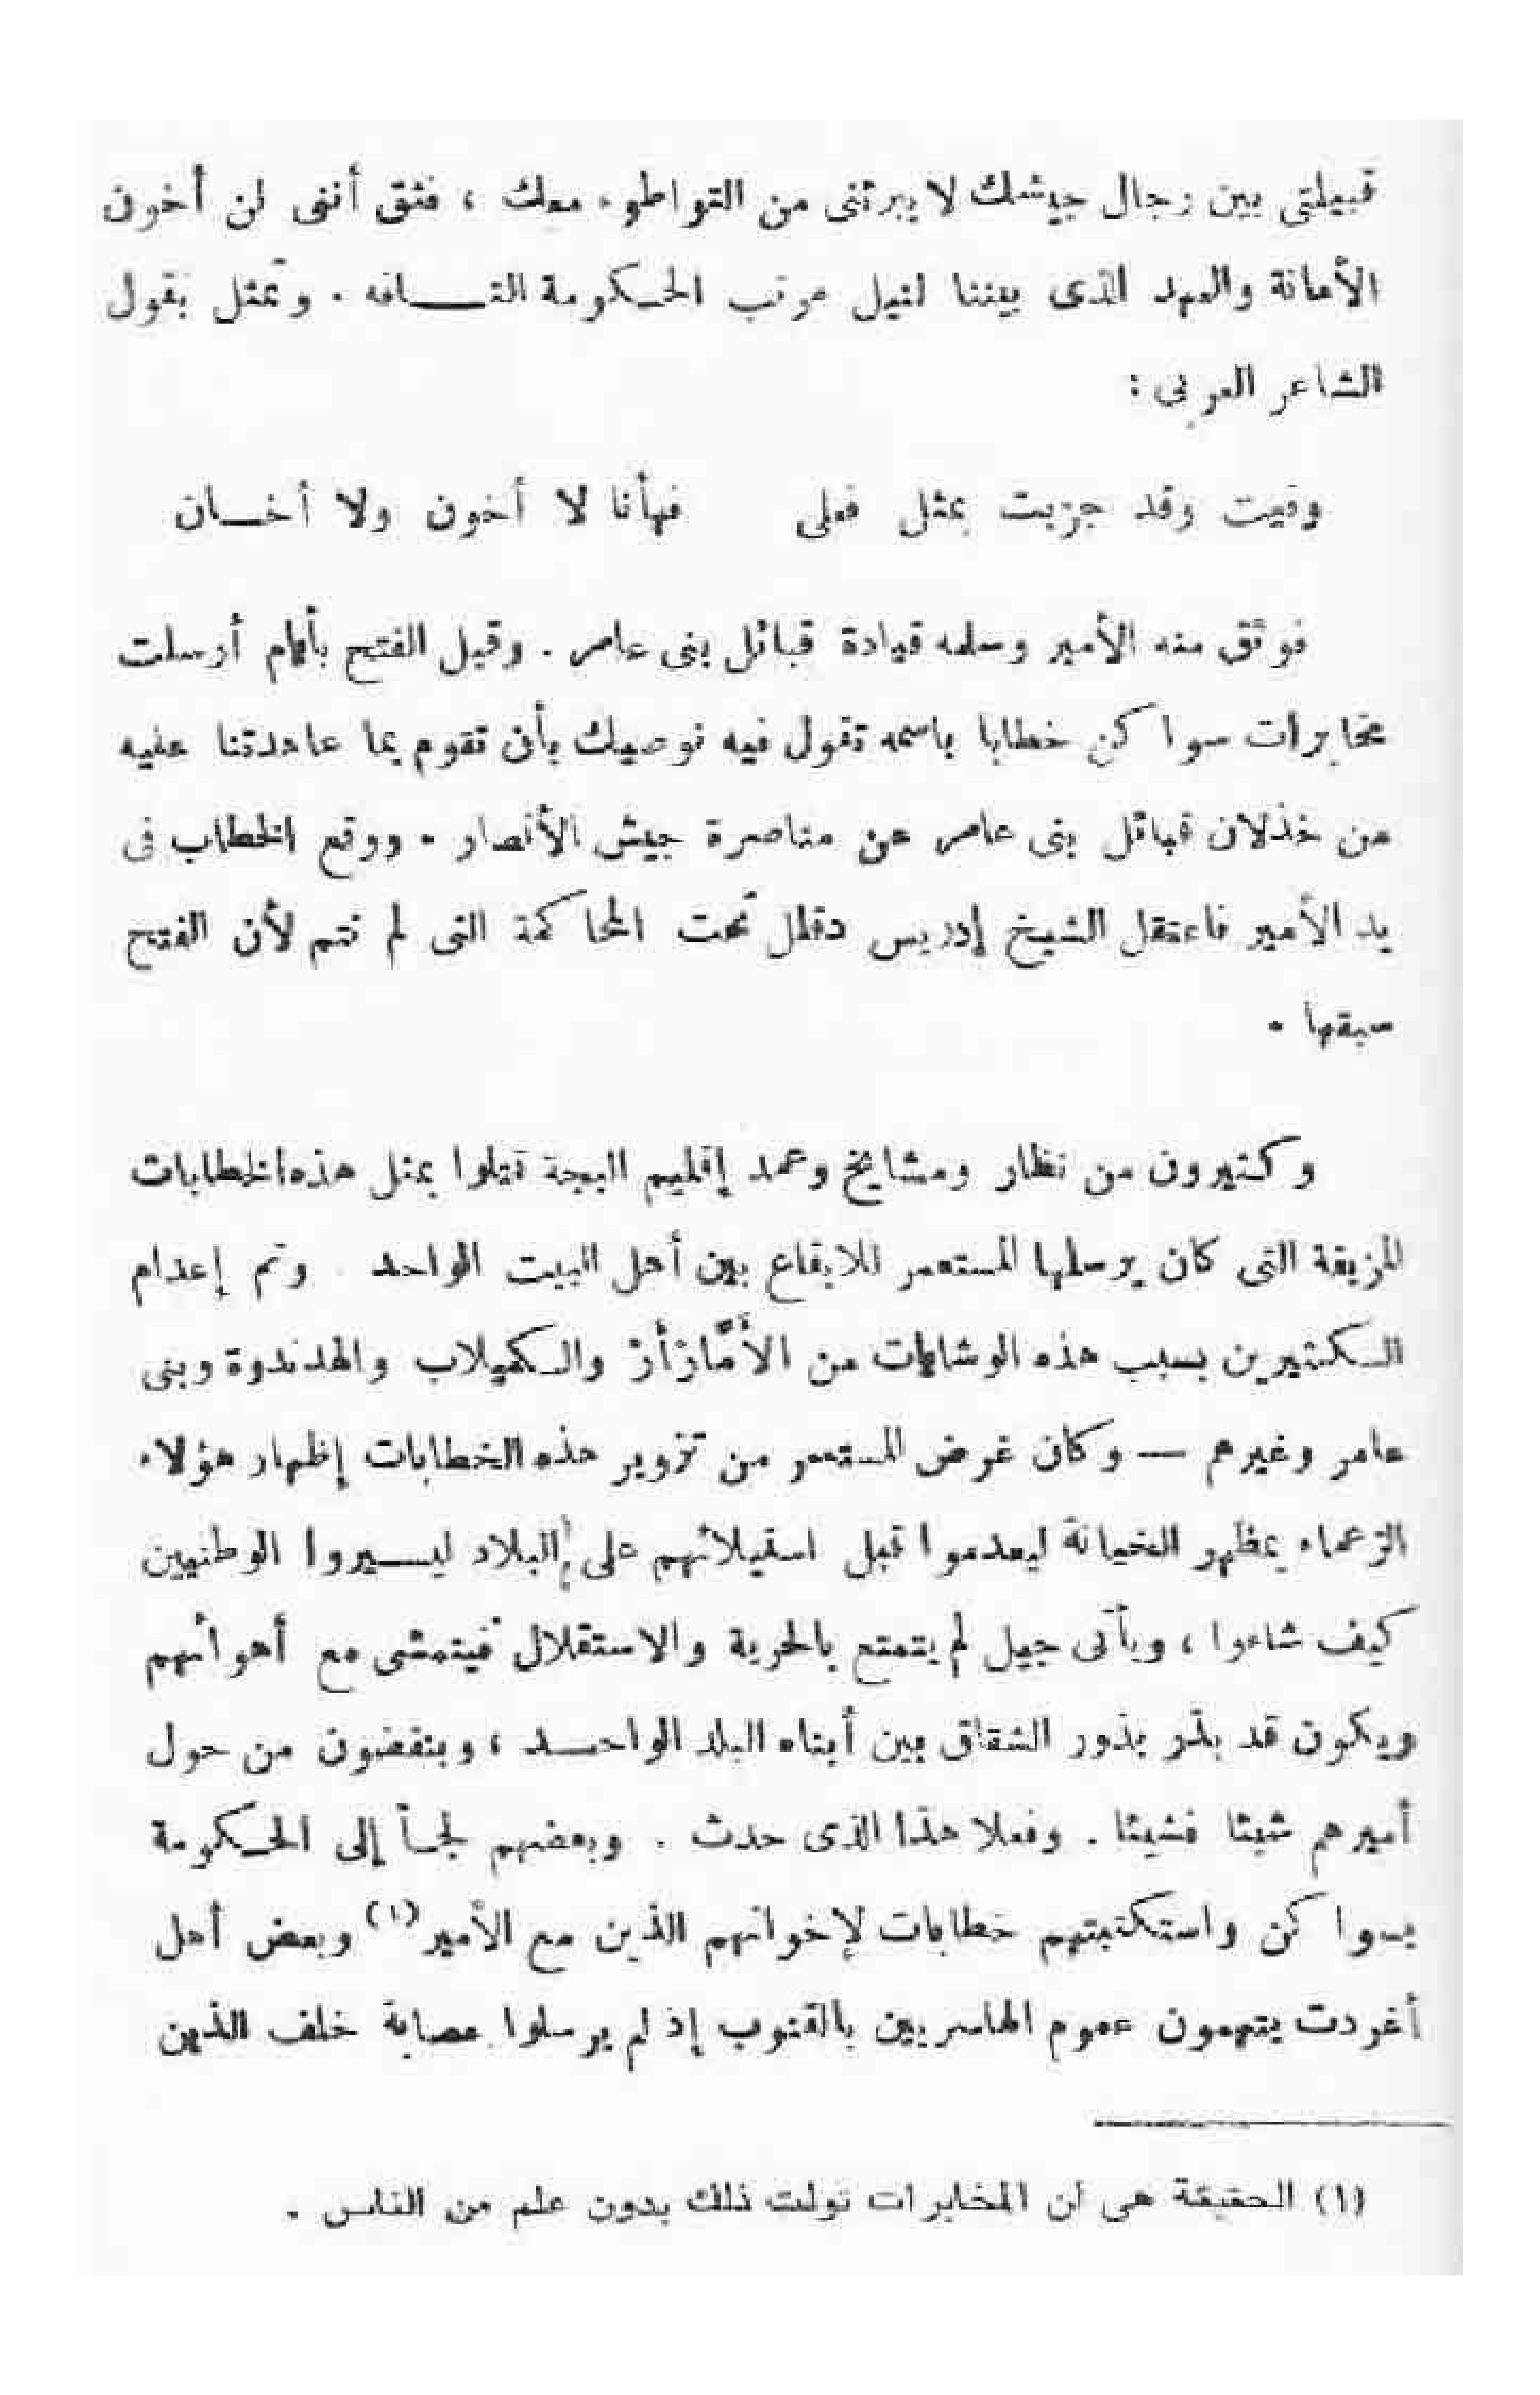 قبيلتي بين رجال جيشك لا يبرئنى من التواطوء معك ، فثق أننى لن أخون
الأمانة والعهد الذى بيننا لنيل مرتب الحكومة التافه . وتمثل بقول
الشاعر العربى :
وفيت وقد جزيت بمثل فعلى فهأنا لا أخون ولا أخان
فوثق منه الأمير وسلمه قيادة قبائل بنى عامر . وقبل الفتح بأيام أرسلت
مخابرات سواكن خطابا باسمه تقول فيه نوصيك بأن تقوم بما عاهدتنا عليه
من خذلان قبائل بنى عامر عن مناصرة جيش الأنصار . ووقع الخطاب فى
يد الأمير فاعتقل الشيخ إدريس دقلل تحت المحاكمة التى لم تتم لأن الفتح
سبقها .
وكثيرون من نظار ومشايخ وعمد إقليم البجة قتلوا بمثل هذه الخطابات
المزيفة التى كان يرسلها المستعمر للايقاع بين أهل البيت الواحد . وتم إعدام
الكثيرين بسبب هذه الوشايات من الأمَّارْأرْ والكميلاب والهدندوة وبنى
عامر وغيرهم — وكان غرض المستعمر من تزوير هذه الخطابات إظهار هؤلاء
الزعماء بمظهر الخيانة ليعدموا قبل استيلائهم على البلاد ليسيروا الوطنيين
كيف شاءوا ، ويأتى جيل لم يتمتع بالحرية والاستقلال فيتمشى مع أهوائهم
ويكون قد بذر بذور الشقاق بين أبناء البلد الواحد ، وينفضون من حول
أميرهم شيئا فشيئا . وفعلا هذا الذى حدث . وبعضهم لجأ إلى الحكومة
بسواكن واستكتبتهم خطابات لإخوانهم الذين مع الأمير (١) وبعض أهل
أغردت يتهمون عموم الهاسريين بالقنوب إذ لم يرسلوا عصابة خلف الذين
(١) الحقيقة هى أن المخابرات تولت ذلك بدون علم من الناس .